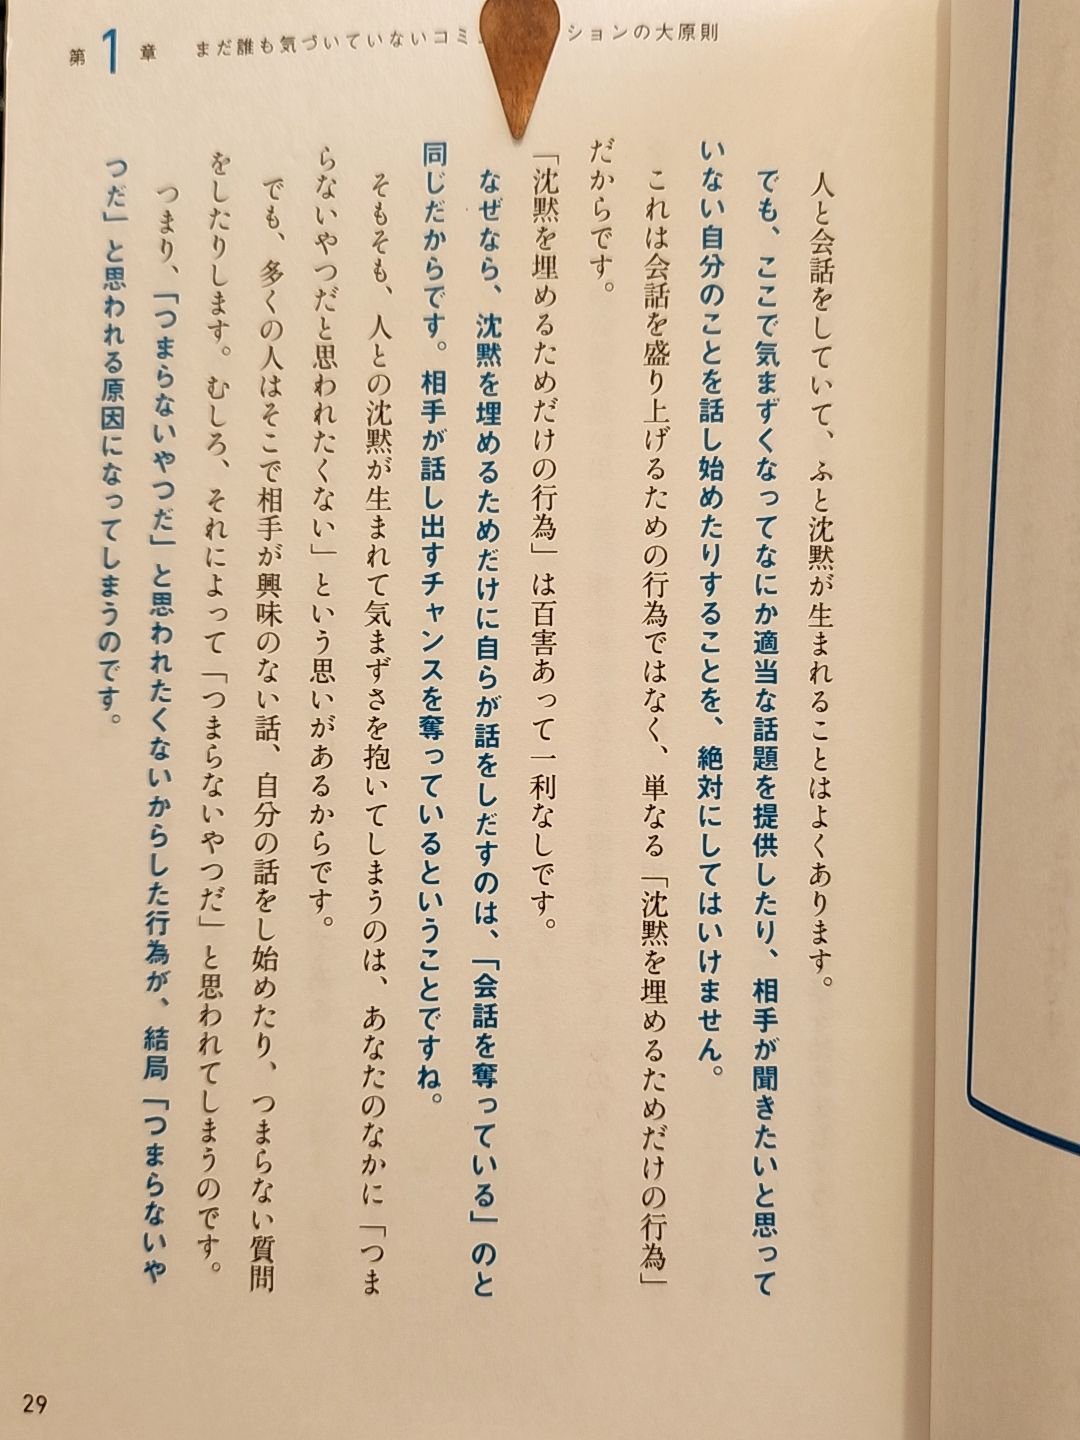 第1章 まだ誰も気づいていないコミ ションの大原則
人と会話をしていて、ふと沈黙が生まれることはよくあります。
でも、ここで気まずくなってなにか適当な話題を提供したり、相手が聞きたいと思って
いない自分のことを話し始めたりすることを、絶対にしてはいけません。
これは会話を盛り上げるための行為ではなく、単なる「沈黙を埋めるためだけの行為」
だからです。
「沈黙を埋めるためだけの行為」は百害あって一利なしです。
なぜなら、沈黙を埋めるためだけに自らが話をしだすのは、「会話を奪っている」のと
同じだからです。相手が話し出すチャンスを奪っているということですね。
そもそも、人との沈黙が生まれて気まずさを抱いてしまうのは、あなたのなかに「つま
らないやつだと思われたくない」という思いがあるからです。
でも、多くの人はそこで相手が興味のない話、自分の話をし始めたり、つまらない質問
をしたりします。むしろ、それによって「つまらないやつだ」と思われてしまうのです。
つまり、「つまらないやつだ」と思われたくないからした行為が、結局「つまらないや
つだ」と思われる原因になってしまうのです。
29